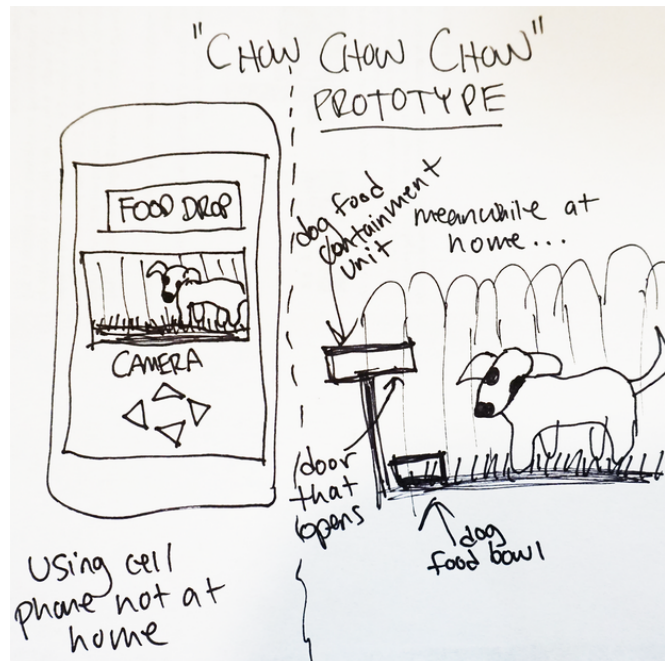 "CHOW CHOW CHOW"
PROTOTYPE
FOOD DROP
CAMERA
using cell
phone not at
home
dog food
containment
unit
meanwhile at
home...
door
that
opens
dog
food bowl